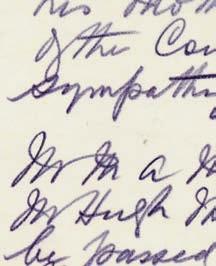 his
of the Con
sympathy
Mr M A H
Mr Hugh M
be passed